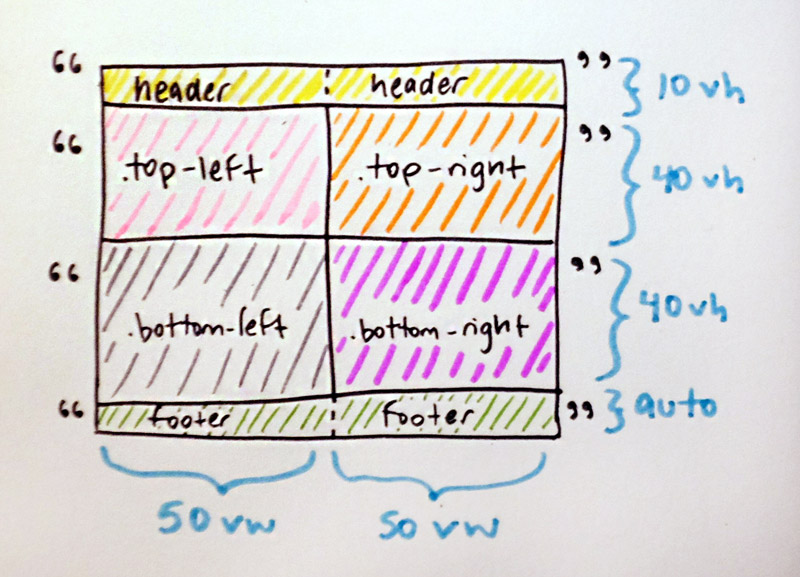 “ header header ” } 10 vh
“ .top-left .top-right ” } 40 vh
“ .bottom-left .bottom-right ” } 40 vh
“ footer footer ” } auto
50 vw 50 vw